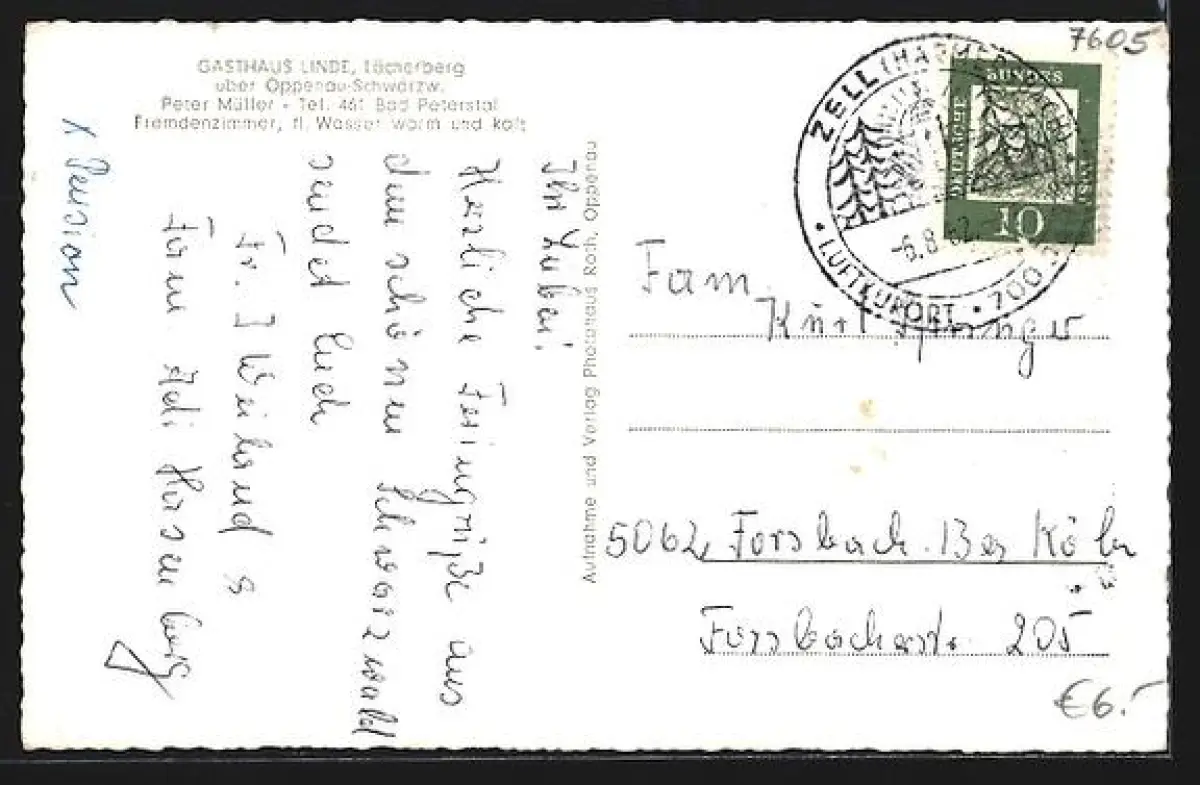 GASTHAUS LINDE, Löcherberg
über Oppenau-Schwarzw.
Peter Müller - Tel. 461 Bad Peterstal
Fremdenzimmer, fl. Wasser warm und kalt
x Pension
Ihr Lieben!
Herzliche Feriengrüße aus
dem schönen Schwarzwald
sendet Euch
Fr. J Weiland s
Adi
Aufnahme und Verlag Photohaus Roch, Oppenau
7605
ZELL (HARMERSBACH)
-6.8.62
LUFTKURORT
700
DEUTSCHE BUNDESPOST
10
Fam.
Kurt
5062 Forsbach. Bez Köln
Forsbacherstr. 205
€6.-